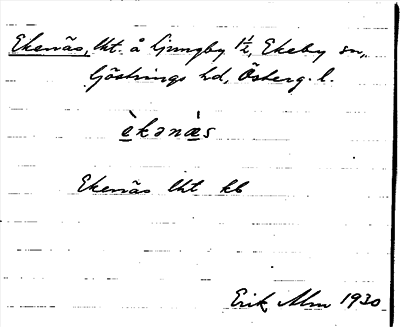 Ekenäs, lht. å Ljungby 1/2, Ekeby sn,
Göstrings hd, Österg. l.
èkənä́s
Ekenäs lht kb
Erik Alm 1930